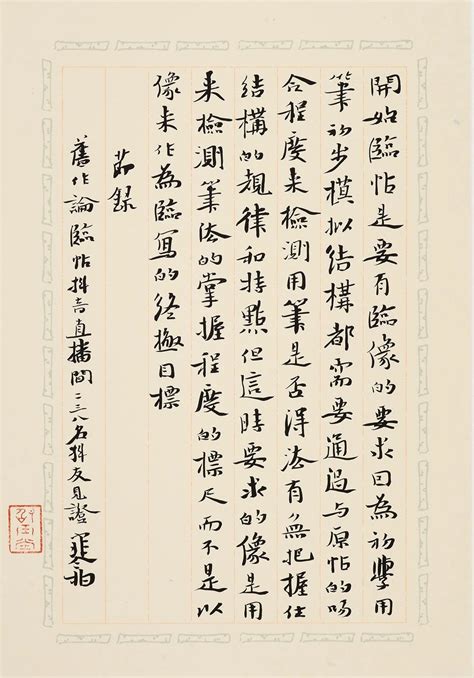 開始臨帖是要有臨像的要求因為初學用
筆初步模拟結構都需要通過与原帖的吻
合程度来檢測用筆是否得法有無把握住
結構的規律和特點但這時要求的像是用
来檢測筆法的掌握程度的標尺而不是以
像来作為臨寫的终極目標
節録
舊作論臨帖抖音直播間二三八名抖友見證